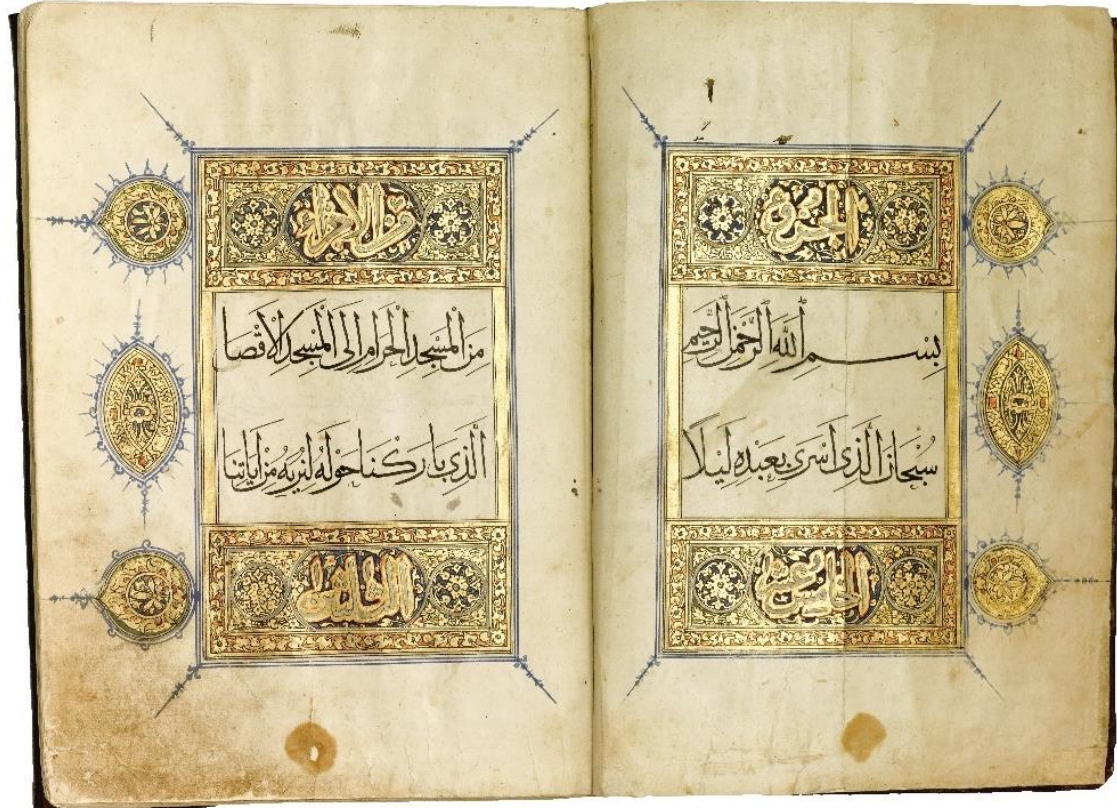 الجزء
بِسْمِ اللَّهِ الرَّحْمَنِ الرَّحِيمِ
سُبْحَانَ الَّذِي اَسْرَى بِعَبْدِهِ لَيْلًا
الخامس عشر
من الاجزا
مِنَ الْمَسْجِدِ الْحَرَامِ اِلَى الْمَسْجِدِ الْاَقْصَا
الَّذِي بَارَكْنَا حَوْلَهُ لِنُرِيَهُ مِنْ اَيَاتِنَا
الثلاثين